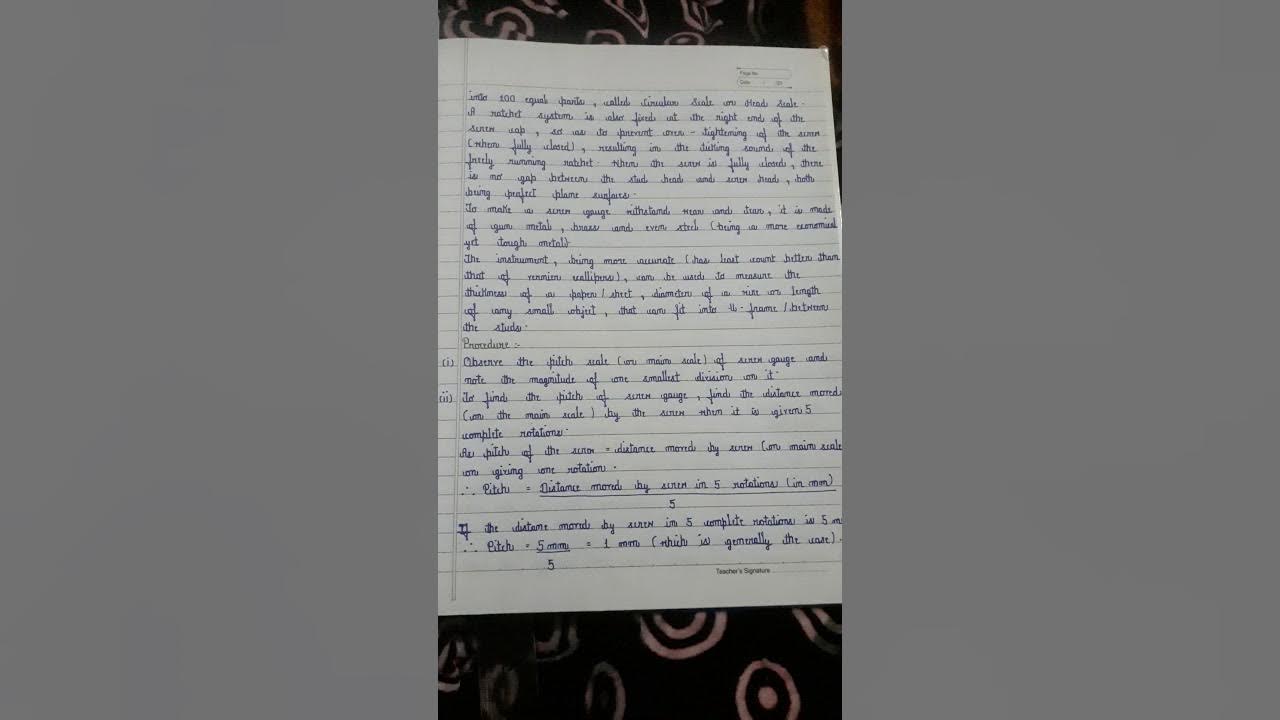 Page No.
Date / /20
into 100 equal parts, called Circular Scale or Head Scale.
A ratchet system is also fixed at the right end of the
screw cap, so as to prevent over-tightening of the screw
(when fully closed), resulting in the ticking sound of the
freely running ratchet. When the screw is fully closed, there
is no gap between the stud head and screw head, both
being perfect plane surfaces.
To make a screw gauge withstand wear and tear, it is made
of gun metal, brass and even steel (being a more economical
yet tough metal)
The instrument, being more accurate (has least count better than
that of vernier callipers), can be used to measure the
thickness of a paper/sheet, diameter of a wire or length
of any small object, that can fit into U-frame/between
the studs.
Procedure :-
(i) Observe the pitch scale (or main scale) of screw gauge and
note the magnitude of one smallest division on it.
(ii) To find the pitch of screw gauge, find the distance moved
(on the main scale) by the screw when it is given 5
complete rotations.
As pitch of the screw = distance moved by screw (on main scale
on giving one rotation.
∴ Pitch = Distance moved by screw in 5 rotations (in mm)
5
If the distance moved by screw in 5 complete rotations is 5 m
∴ Pitch = 5 mm = 1 mm (which is generally the case).
5
Teacher's Signature